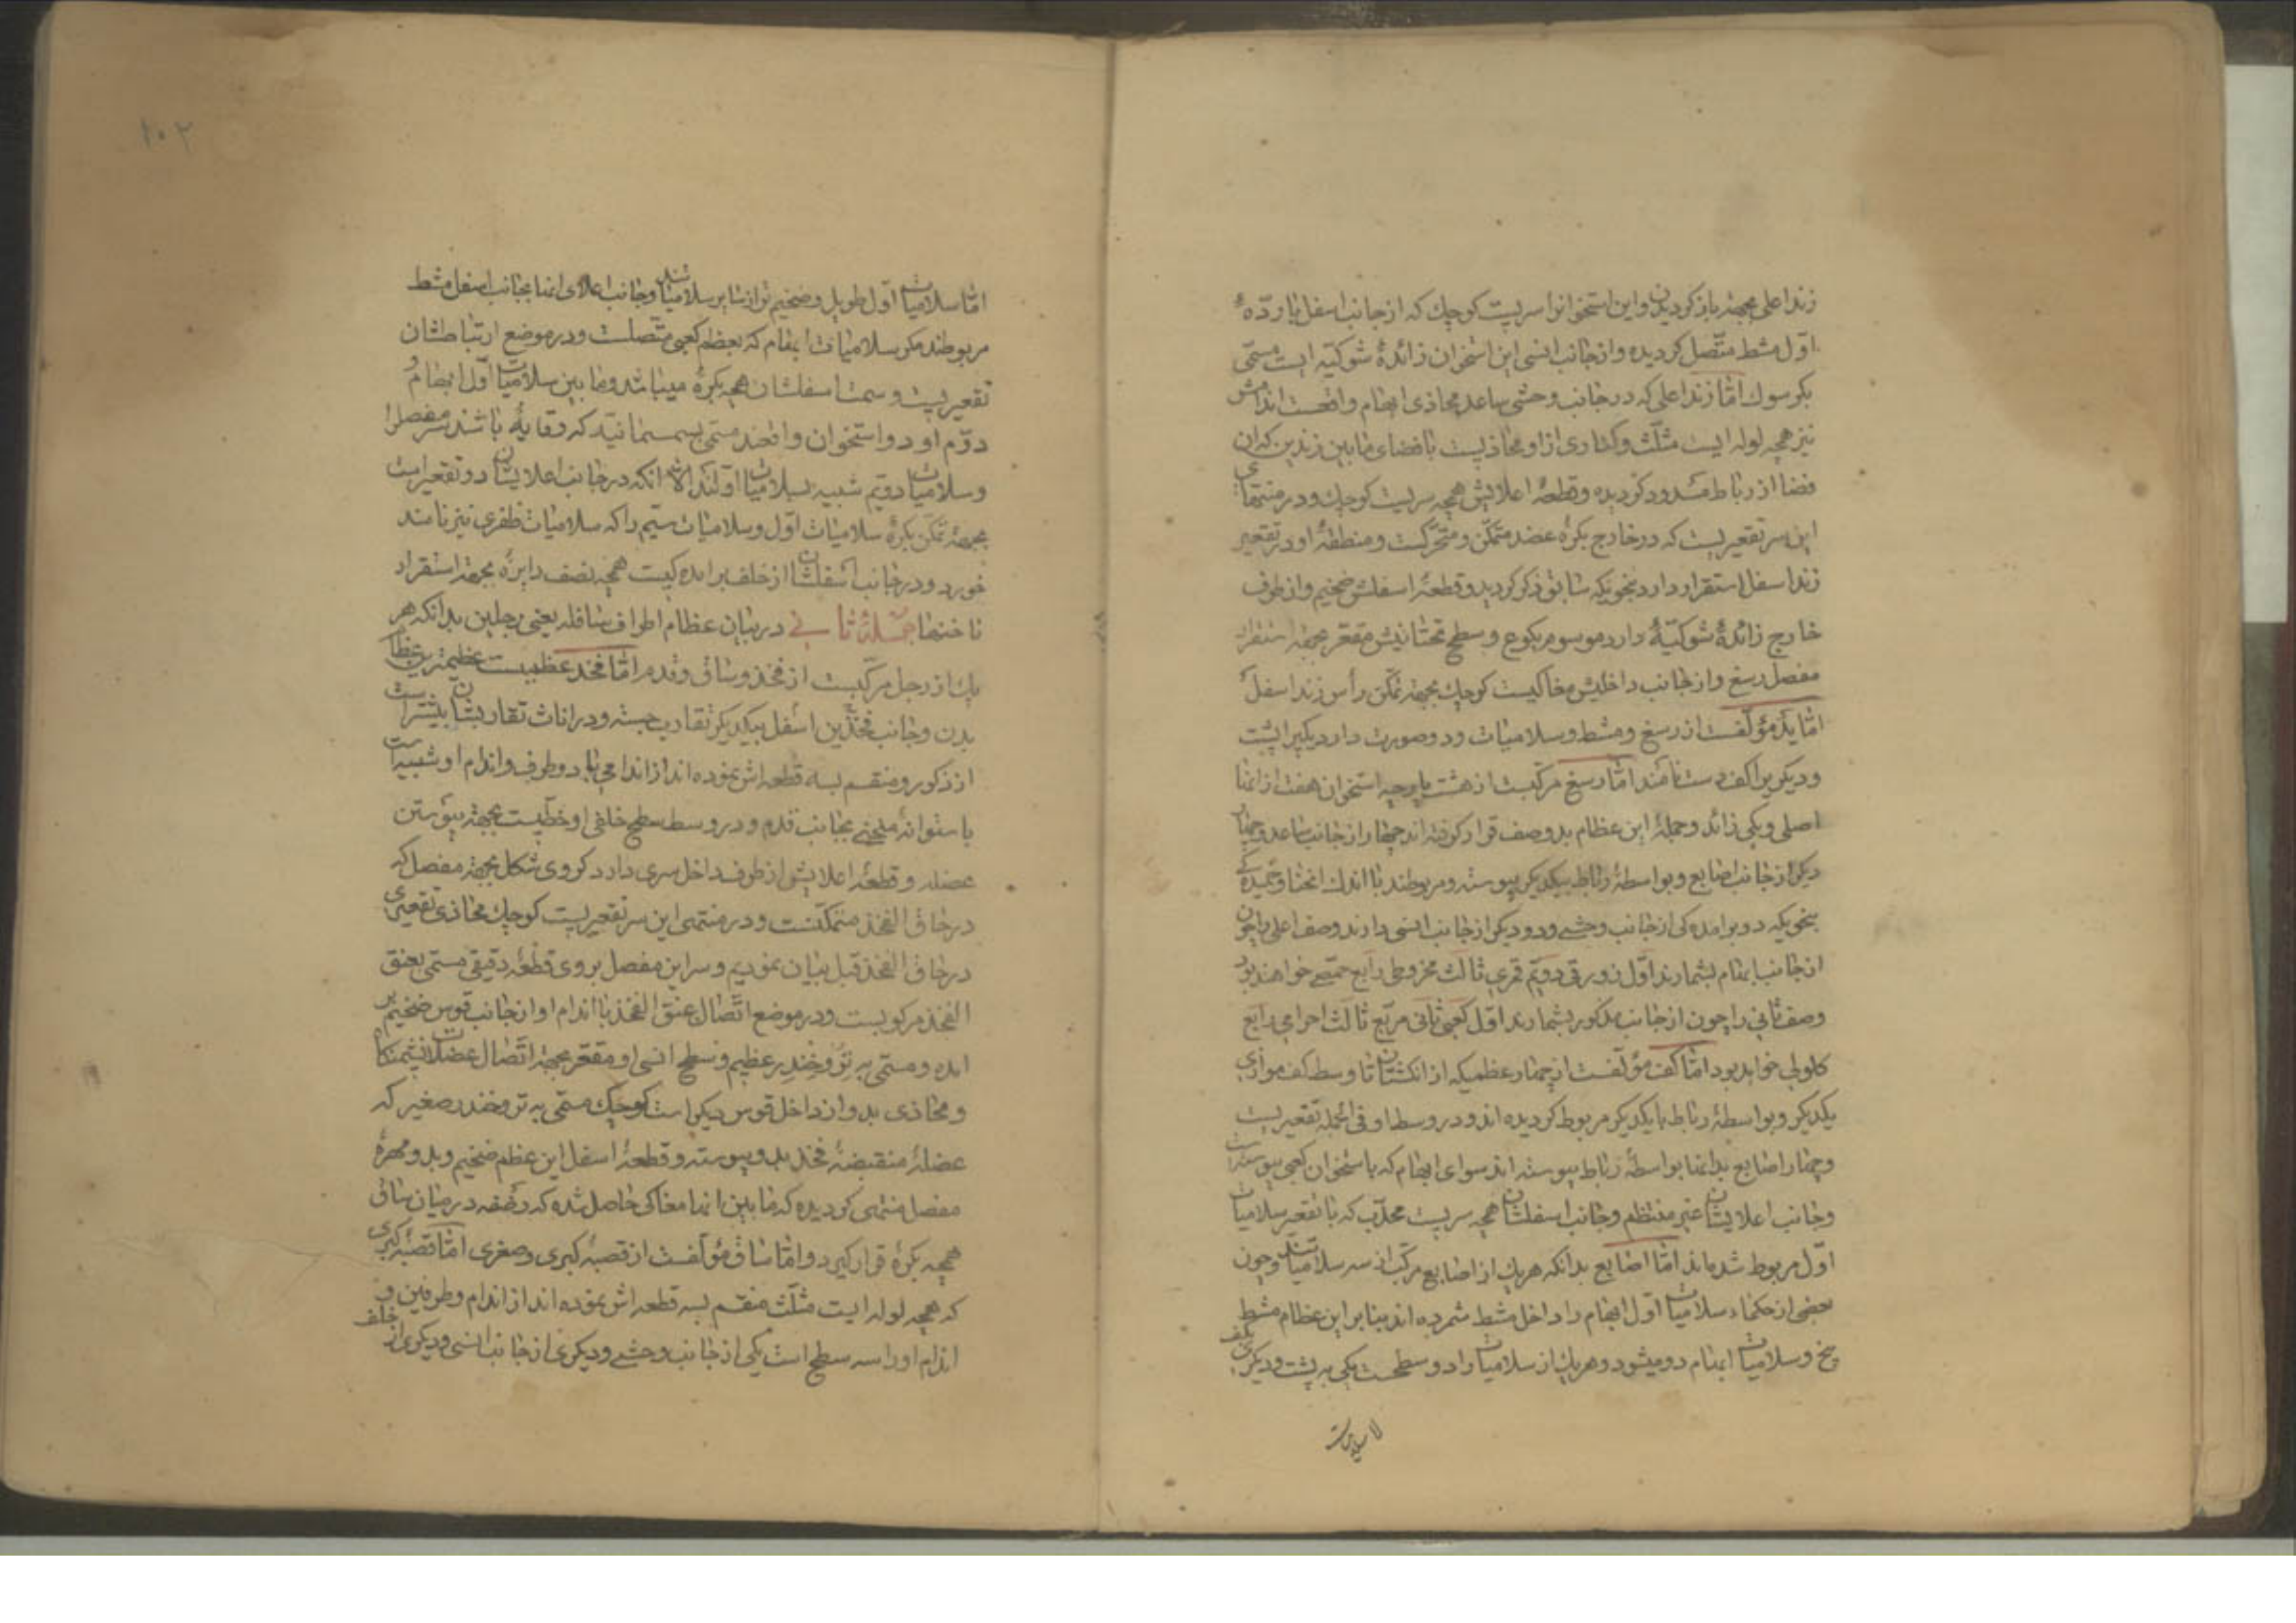 زند اعلی بجهة باز کردیدن و این استخوانرا سریست کوچك که از جانب اسفل با وردهٔ
اوّل مشط متّصل کردیده و از جانب انسی این استخوان زائدهٔ شوکیّه ایست مسمّی
بکرسوك امّا زند اعلی که در جانب وحشی ساعد محاذی ابهام واقعست اندامش
نیز همچه لوله ایست مثلّث و کناری از او محاذیست با فضای مابین زندین که ان
فضا از رباط مسدود کردیده و قطعهٔ اعلایش همچه سریست کوچك و در منتهای
این سر تقعیریست که در خارج بکرهٔ عضد متمکّن و متحرّکست و منطقهٔ او در تقعیر
زند اسفل استقرار دارد بنحویکه سابق ذکر کردید و قطعهٔ اسفلش ضخیم و از طرف
خارج زائدهٔ شوکیّهٔ دارد موسوم بکوع و سطح تحتانیش مقعّر بجهة استقرار
مفصل رسغ و از جانب داخلیش مغاکیست کوچك بجهة تمکّن رأس زند اسفل
امّا ید مؤلّفست از رسغ و مشط و سلامیات و دو صورت دارد یکیرا پشت
و دیکریرا کف دست نامند امّا رسغ مرکّبست از هشت پارچه استخوان هفت از انها
اصلی و یکی زائد و جملهٔ این عظام بدو صف قرار کرفته اند چهار از جانب ساعد و چهار
دیکر از جانب اصابع و بواسطهٔ رباط بیکدیکر پیوسته و مربوطند با اندك انحنا و خمیدکی
بنحویکه دو برامدکی از جانب وحشی و دو دیکر از جانب انسی دارند و صف اعلی را چون
از جانب ابهام بشمارند اوّل زورقی دویّم قمری ثالث مخروطی رابع حمّصی خواهند بود
وصف ثانی را چون از جانب مذکور بشمارند اوّل کعبی ثانی مربّع ثالث اهرامی رابع
کلولی خواهد بود امّا کف مؤلّفست از چهار عظمیکه از انکشتان تا وسط کف موازی
یکدیکر و بواسطهٔ رباط با یکدیکر مربوط کردیده اند و در وسط او فی الجمله تقعیریست
و چهار اصابع بدانها بواسطهٔ رباط پیوسته اند سوای ابهام که باستخوان کعبی پیوستست
و جانب اعلایشان غیر منتظم و جانب اسفلشان همچه سریست محدّب که با تقعیر سلامیات
اوّل مربوط شده اند امّا اصابع بدانکه هریك از اصابع مرکّب از سه سلامیاتند و چون
بعضی از حکماء سلامیات اوّل ابهام را داخل مشط شمرده اند بنابراین عظام مشط
پنج و سلامیات ابهام دو میشود و هریك از سلامیات را دو سطحست یکی به پشت و دیکری بکف
امّا سلامیات
۱۰۲
امّا سلامیات اوّل طویل و ضخیم تر از سایر سلامیاتند و جانب اعلای انها بجانب اسفل مشط
مربوطند مکر سلامیات ابهام که بعظم کعبی متّصلست و در موضع ارتباطشان
تقعیریست و سمت اسفلشان همچه بکرهٔ میباشد و ما بین سلامیات اوّل ابهام و
دوّم او دو استخوان واقعند مسمّی بسمسمانیّه که وقایهٔ باشند مر مفصل را
و سلامیات دویّم شبیه بسلامیات اوّلند الّا انکه در جانب اعلایشان دو تقعیر است
بجهة تمکّن بکرهٔ سلامیات اوّل و سلامیات سیّم را که سلامیات ظفری نیز نامند
خورد و در جانب اسفلشان از خلف برامدکیست همچه نصف دایرهٔ بجهة استقرار
ناخنها جملهٔ ثانی در بیان عظام اطراف سافله یعنی رجلین بدانکه هر
یك از رجل مرکّبست از فخذ و ساق و قدم امّا فخذ عظمیست عظیمترین عظام
بدن و جانب فخذین اسفل بیکدیکر تقارب جسته و در اناث تقاربشان بیشتر است
از ذکور و منقسم بسه قطعه اش نموده اند از اندامی با دو طرف و اندام او شبیه است
باستوانهٔ منحنی بجانب قدم و در وسط سطح خلفی او خطّیست بجهة پیوستن
عضله و قطعهٔ اعلایش از طرف داخل سری دارد کروی شکل بجهة مفصل که
در حاق الفخذ متمکّنست و در منتهی این سر تقعیریست کوچك محاذی تقعیری
در حاق الفخذ قبل بیان نمودیم و سر این مفصل بر روی قطعهٔ دقیقی مسمّی بعنق
الفخذ مرکوبست و در موضع اتّصال عنق الفخذ با اندام او از جانب قوس ضخیم بر
امده و مسمّی به تروخندر عظیم و سطح انسی او مقعّر بجهة اتّصال عضلات نشیمنکاه
و محاذی بدو از داخل قوس دیکر است کوچك مسمّی به تروخندر صغیر که
عضلهٔ منقبضهٔ فخذ بدو پیوسته و قطعهٔ اسفل این عظم ضخیم و بدو مهرهٔ
مفصل منتهی کردیده که ما بین انها مغاکی حاصل شده که رضفه در میان ساق
همچه بکرهٔ قرار کیرد و امّا ساق مؤلّفست از قصبهٔ کبری و صغری امّا قصبهٔ کبری
که همچه لوله ایست مثلّث منقسم بسه قطعه اش نموده اند از اندام و طرفین و
اندام او را سه سطح است یکی از جانب وحشی و دیکری از جانب انسی و دیکری از خلف